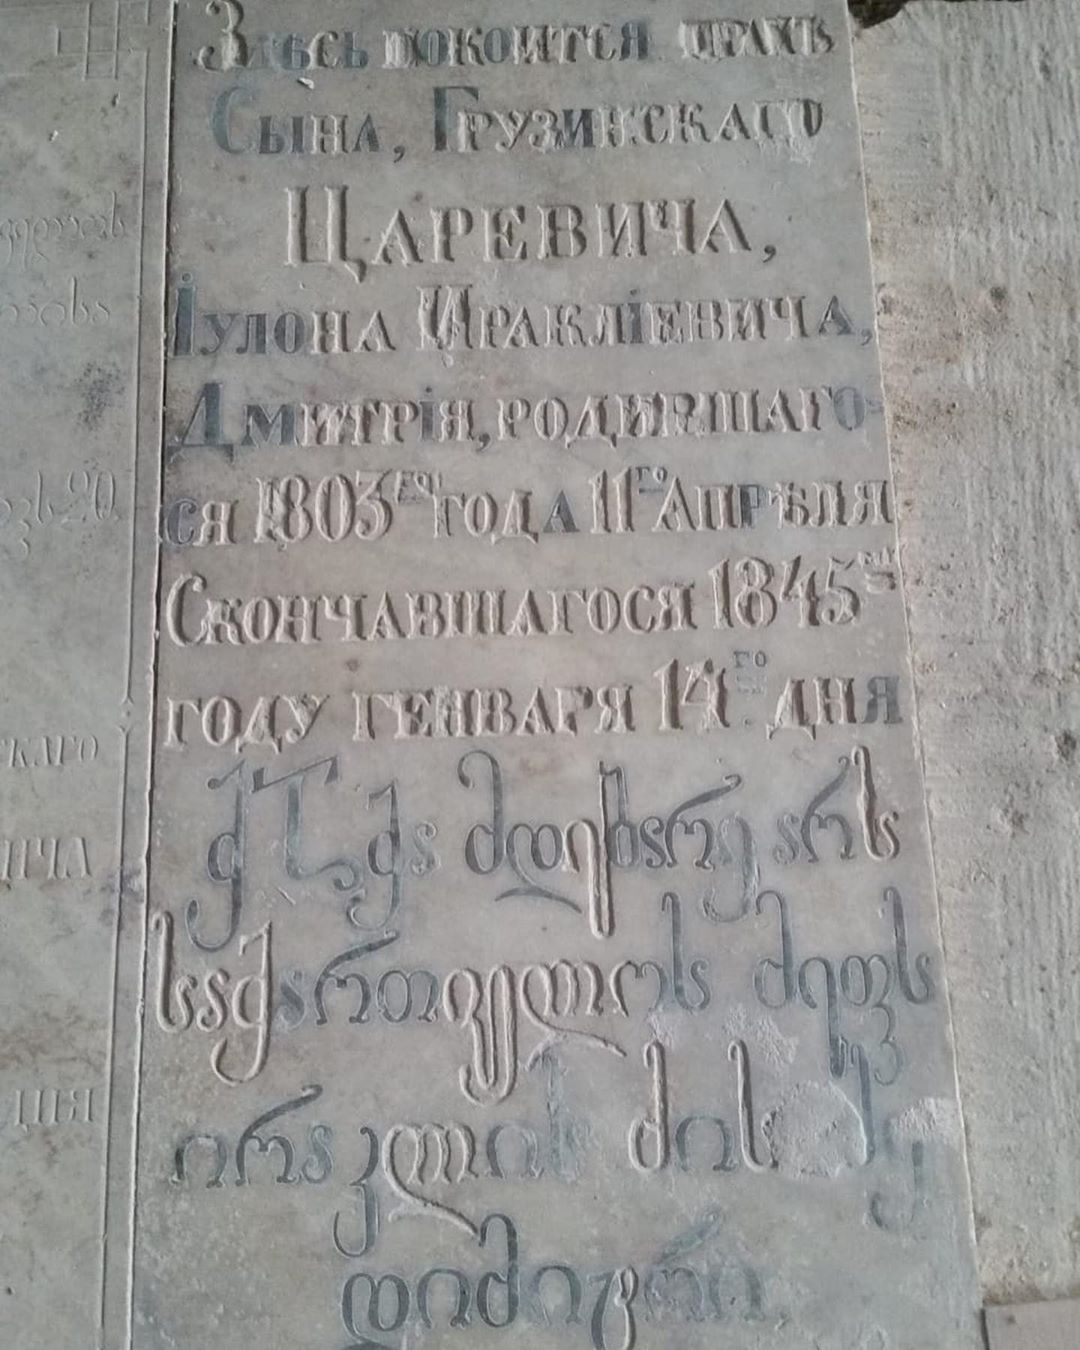 Здѣсь покоится прахъ
Сына, Грузинскаго
Царевича,
Іулона Ираклїевича,
Дмитрія, родившаго-
ся 1803го года 11го Апрѣля
Скончавшагося 1845го
году генваря 14го дня
ქ მდებარე არს
საქართველოს მეფს
ირაკლის ძის
დიმიტრი,
скаго
ича
дня